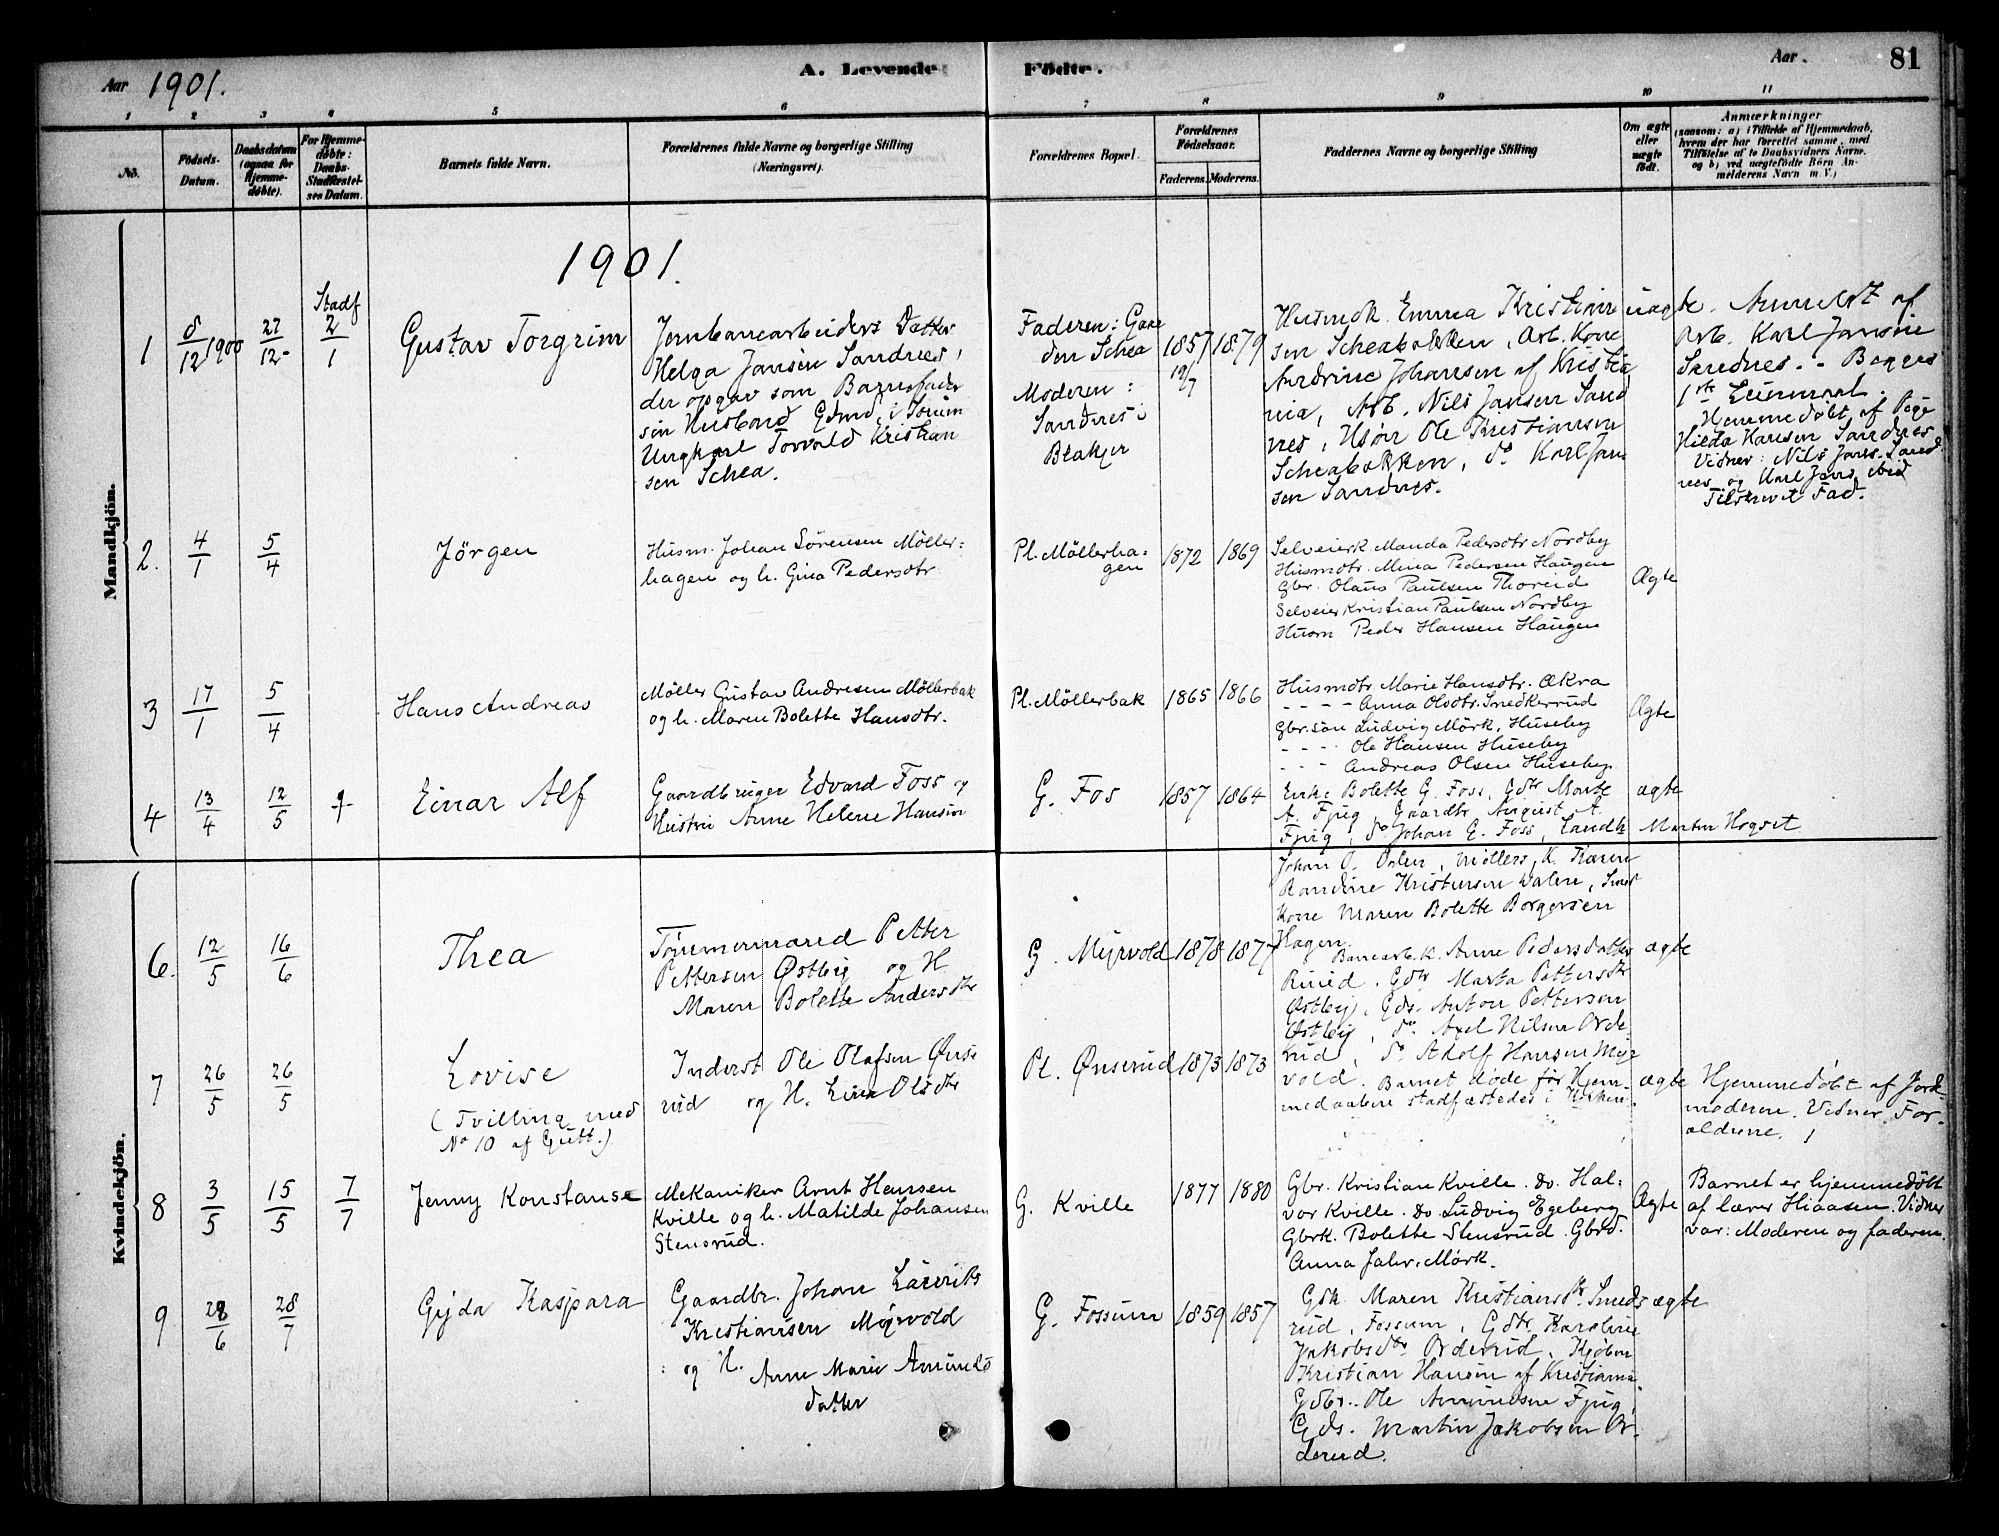 Aar 1901.
A. Levende Födte.
Aar
81
1 2 3 4 5 6 7 8 9 10 11
No.
Födsels-Datum.
Daabsdatum (ogsaa for Hjemme-döbte).
For Hjemme-döbte: Daabs-Stadfæstel-ses Datum.
Barnets fulde Navn.
Forældrenes fulde Navne og borgerlige Stilling (Næringsvei).
Forældrenes Bopæl.
Forældrenes Födselsaar.
Faderens. Moderens.
Faddernes Navne og borgerlige Stilling
Om ægte eller uægte födt.
Anmærkninger
(saasom: a) i Tilfælde af Hjemmedaab,
hvem der har forrettet samme, med
Tilföielse af to Daabsvidners Navne.
og b) ved uægtefödte Börn An-
melderens Navn m. V.)
Mandkjön.
1901.
1
8/12 1900
27/12
Stadf 2/1
Gustav Torgrim
Jernbanearbeiders Datter
Helga Jansen Sandnes,
der opgav som Barnefader
sin Husbond Gdmd. i Sörum
Ungkarl Torvald Kristian
sen Schea.
Faderen: Gaar
den Schea
Moderen:
Sandnes i
Blakjer
1857 19/7
1879
Husmdk. Emma Kristian
sen Scheabakken, Arb. Kone
Andrine Johansen af Kristia
nia, Arb. Nils Jansen Sand
nes, Ole Kristiansen
Scheabakken, do Karl Jan
sen Sandnes.
uægte.
Anmeldt af
Arb. Karl Jansen
Sandnes. - Begges
1ste Leiermaal.
Hjemmedöbt af Pige
Hilda Hansen Sandnes
Vidner: Nils Jans. Sand
nes og Karl Jans. ibid
Tilskrevet Fad.
2.
4/1
5/4
Jörgen
Husm. Johan Sörensen Möller-
hagen og h. Gina Pedersdtr.
Pl. Möllerha-
gen
1872
1869
Selveierk. Manda Pedersdtr Nordby
Husmdtr. Mina Pedersen Haugen
Gbr. Olaus Paulsen Thoreid
Selveier Kristian Paulsen Nordby
Husm Peder Hansen Haugen
Ægte
3
17/1
5/4
Hans Andreas
Möller Gustav Andresen Möllerbak
og h. Maren Bolette Hansdtr.
Pl. Möllerbak
1865
1866
Husmdtr. Marie Hansdtr. Økra
- - - - Anna Olsdtr. Snedkerrud
Gbr. sön Ludvig Mörk, Huseby
- - - Ole Hansen Huseby
- - - Andreas Olsen Huseby
Ægte
4
13/4
12/5
Einar Alf
Gaardbruger Edvard Foss og
Hustru Anne Helene Hansen
G. Fos
1857
1864
Enke Bolette G. Foss, Gdtr Marte
A. Fjug, Gaardbr August A.
Fjug, do Johan E. Foss, Landh. Martin Hogset
ægte
Kvindekjön.
Johan O. Olsen, Möllers K. Karen
Randine Kristensen Dalen, Smed
kone Maren Bolette Borgersen
Hagen.
6.
12/5
16/6
Thea
Tömmermand Petter
Pettersen Østby og H
Maren Bolette Andersdtr
G. Myrvold
1878
1877
Banearb. k. Anne Pedersdatter
Ruud. Gdtr Marta Pettersdtr
Østby, Gds. Anton Pettersen
Østby, do. Axel Nilsen Orde
rud, do Adolf Hansen Myr
vold.
ægte
7
26/5
26/5
Lovise
(Tvilling med
No 10 af Gutt.)
Inderst Ole Olafsen Önse
rud og H. Olsdtr
Pl. Önserud
1873
1873
Barnet døde før Hjem-
medaaben stadfæstedes i Kirken.
ægte
Hjemmedöbt af Jord-
moderen. Vidner For-
ældrene.
8
3/5
15/5
7/7
Jenny Konstanse
Mekaniker Arnt Hansen
Kville og h. Matilde Johansen
Stensrud.
G. Kville
1877
1880
Gbr. Kristian Kville. Do. Hal-
vor Kville. Do Ludvig Egeberg.
Gbrk. Bolette Stensrud. Gbrd.
Anna Jahr. Mørk.
Ægte
Barnet er hjemmedöbt
af lærer Hiaasen. Vidner
var: Moderen og faderen.
9
28/6
28/7
Gyda Kaspara
Gaardbr. Johan Laurits
Kristiansen Myrvold
og H. Anne Marie Amunds
datter
G. Fossum
1859
1857
Gdk. Maren Kristiansdtr. Smeds
rud, Fossum, Gdtr. Karoline
Jakobsdtr Orderud, Kjöbm
Kristian Hansen af Kristiania
Gdbr. Ole Amundsen Fjug,
Gds. Martin Jakobsen Or-
derud.
ægte